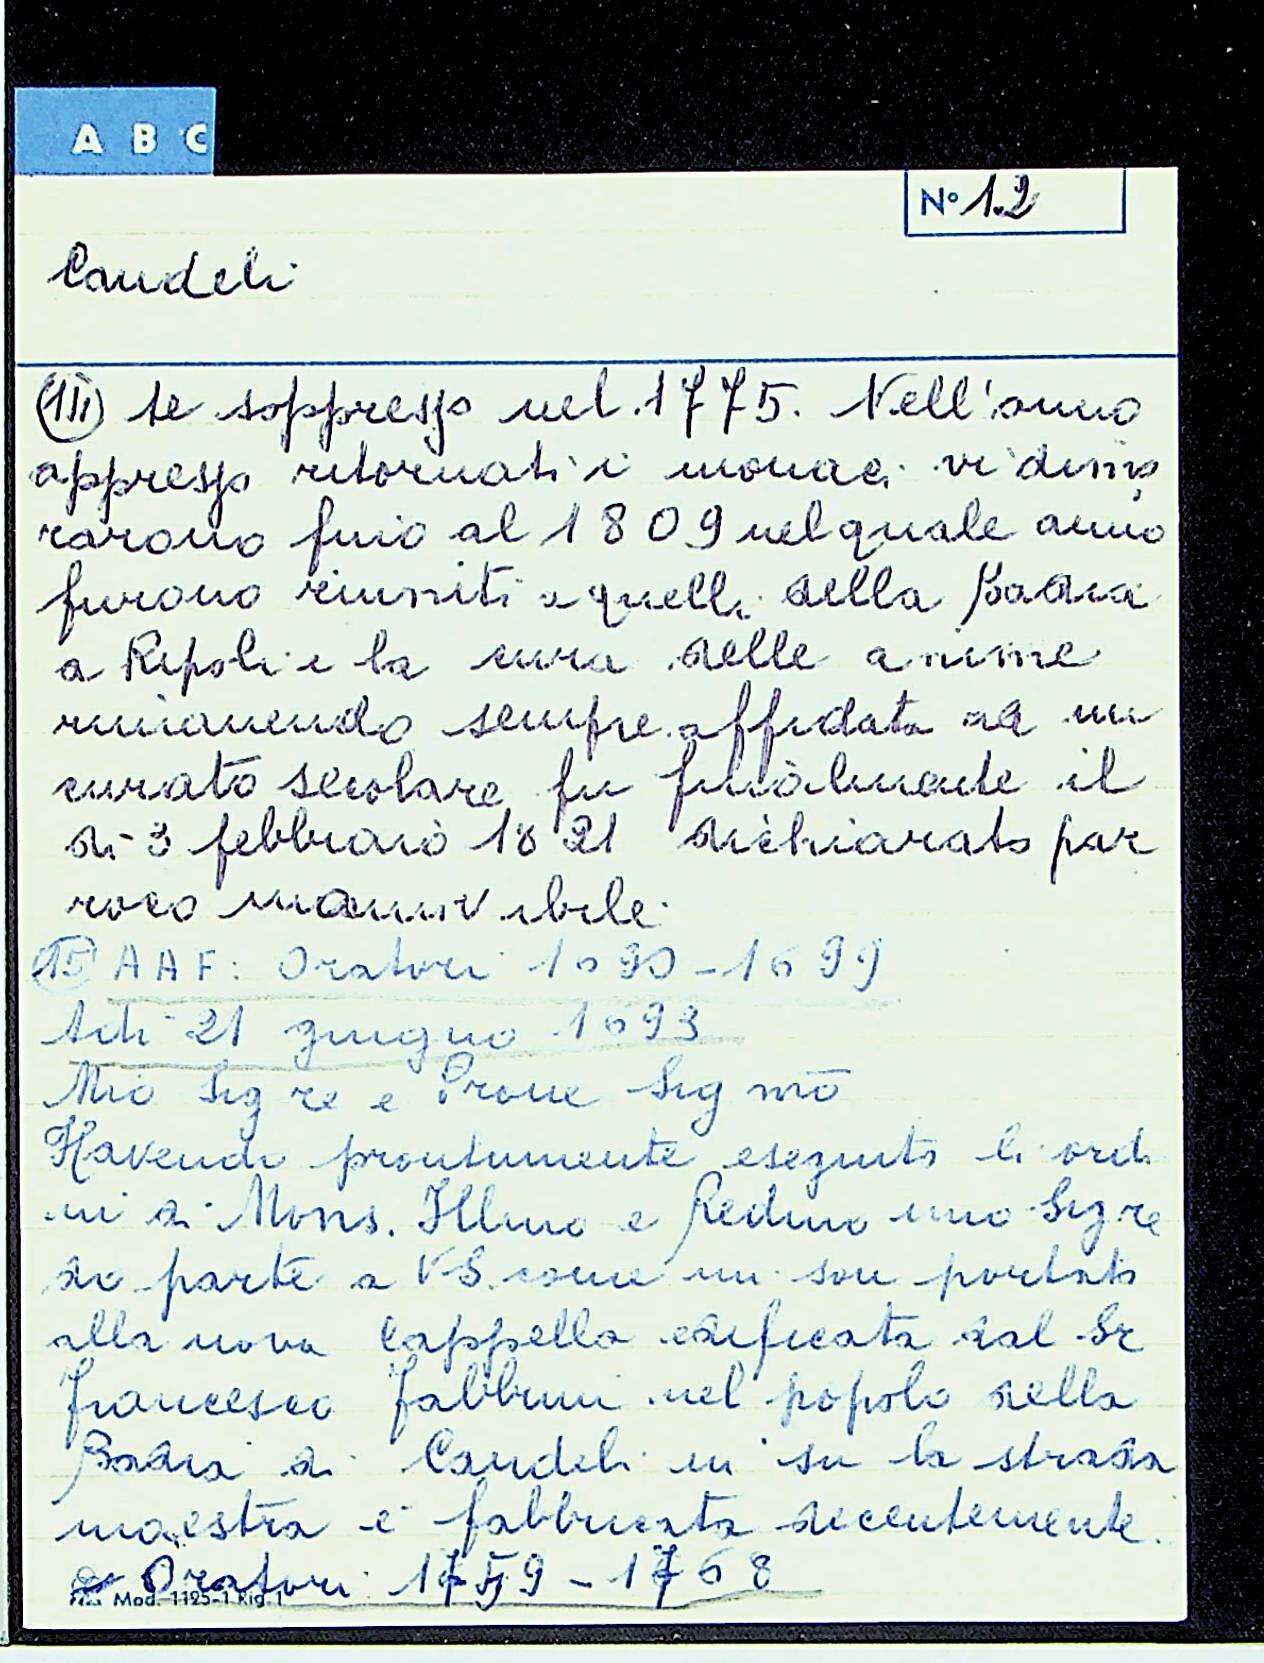 A B C
N° 12
Candeli
(III) te soppresso nel 1775. Nell'anno
appresso ritornati i monaci vi dimo
rarono fino al 1809 nel quale anno
furono riuniti a quelli della Badia
a Ripoli e la cura delle anime
rimanendo sempre affidata ad un
curato secolare fu finalmente il
di 3 febbraio 1821 dichiarato par
roco inamovibile.
AAF: Oratori 1690-1699
Adi 21 giugno 1693
Mio Sig re e Prone Sig mō
Havendo prontamente eseguito li ordi
ni di Mons. Illmo e Redmo mio Sig re
do parte a VS. come mi son portato
alla nova Cappella edificata dal Sr
Francesco Fabbrini nel popolo della
Badia di Candeli in su la strada
maestra e fabbricata decentemente.
Oratori 1759-1768
Mod. 1125-1 Rig. 1